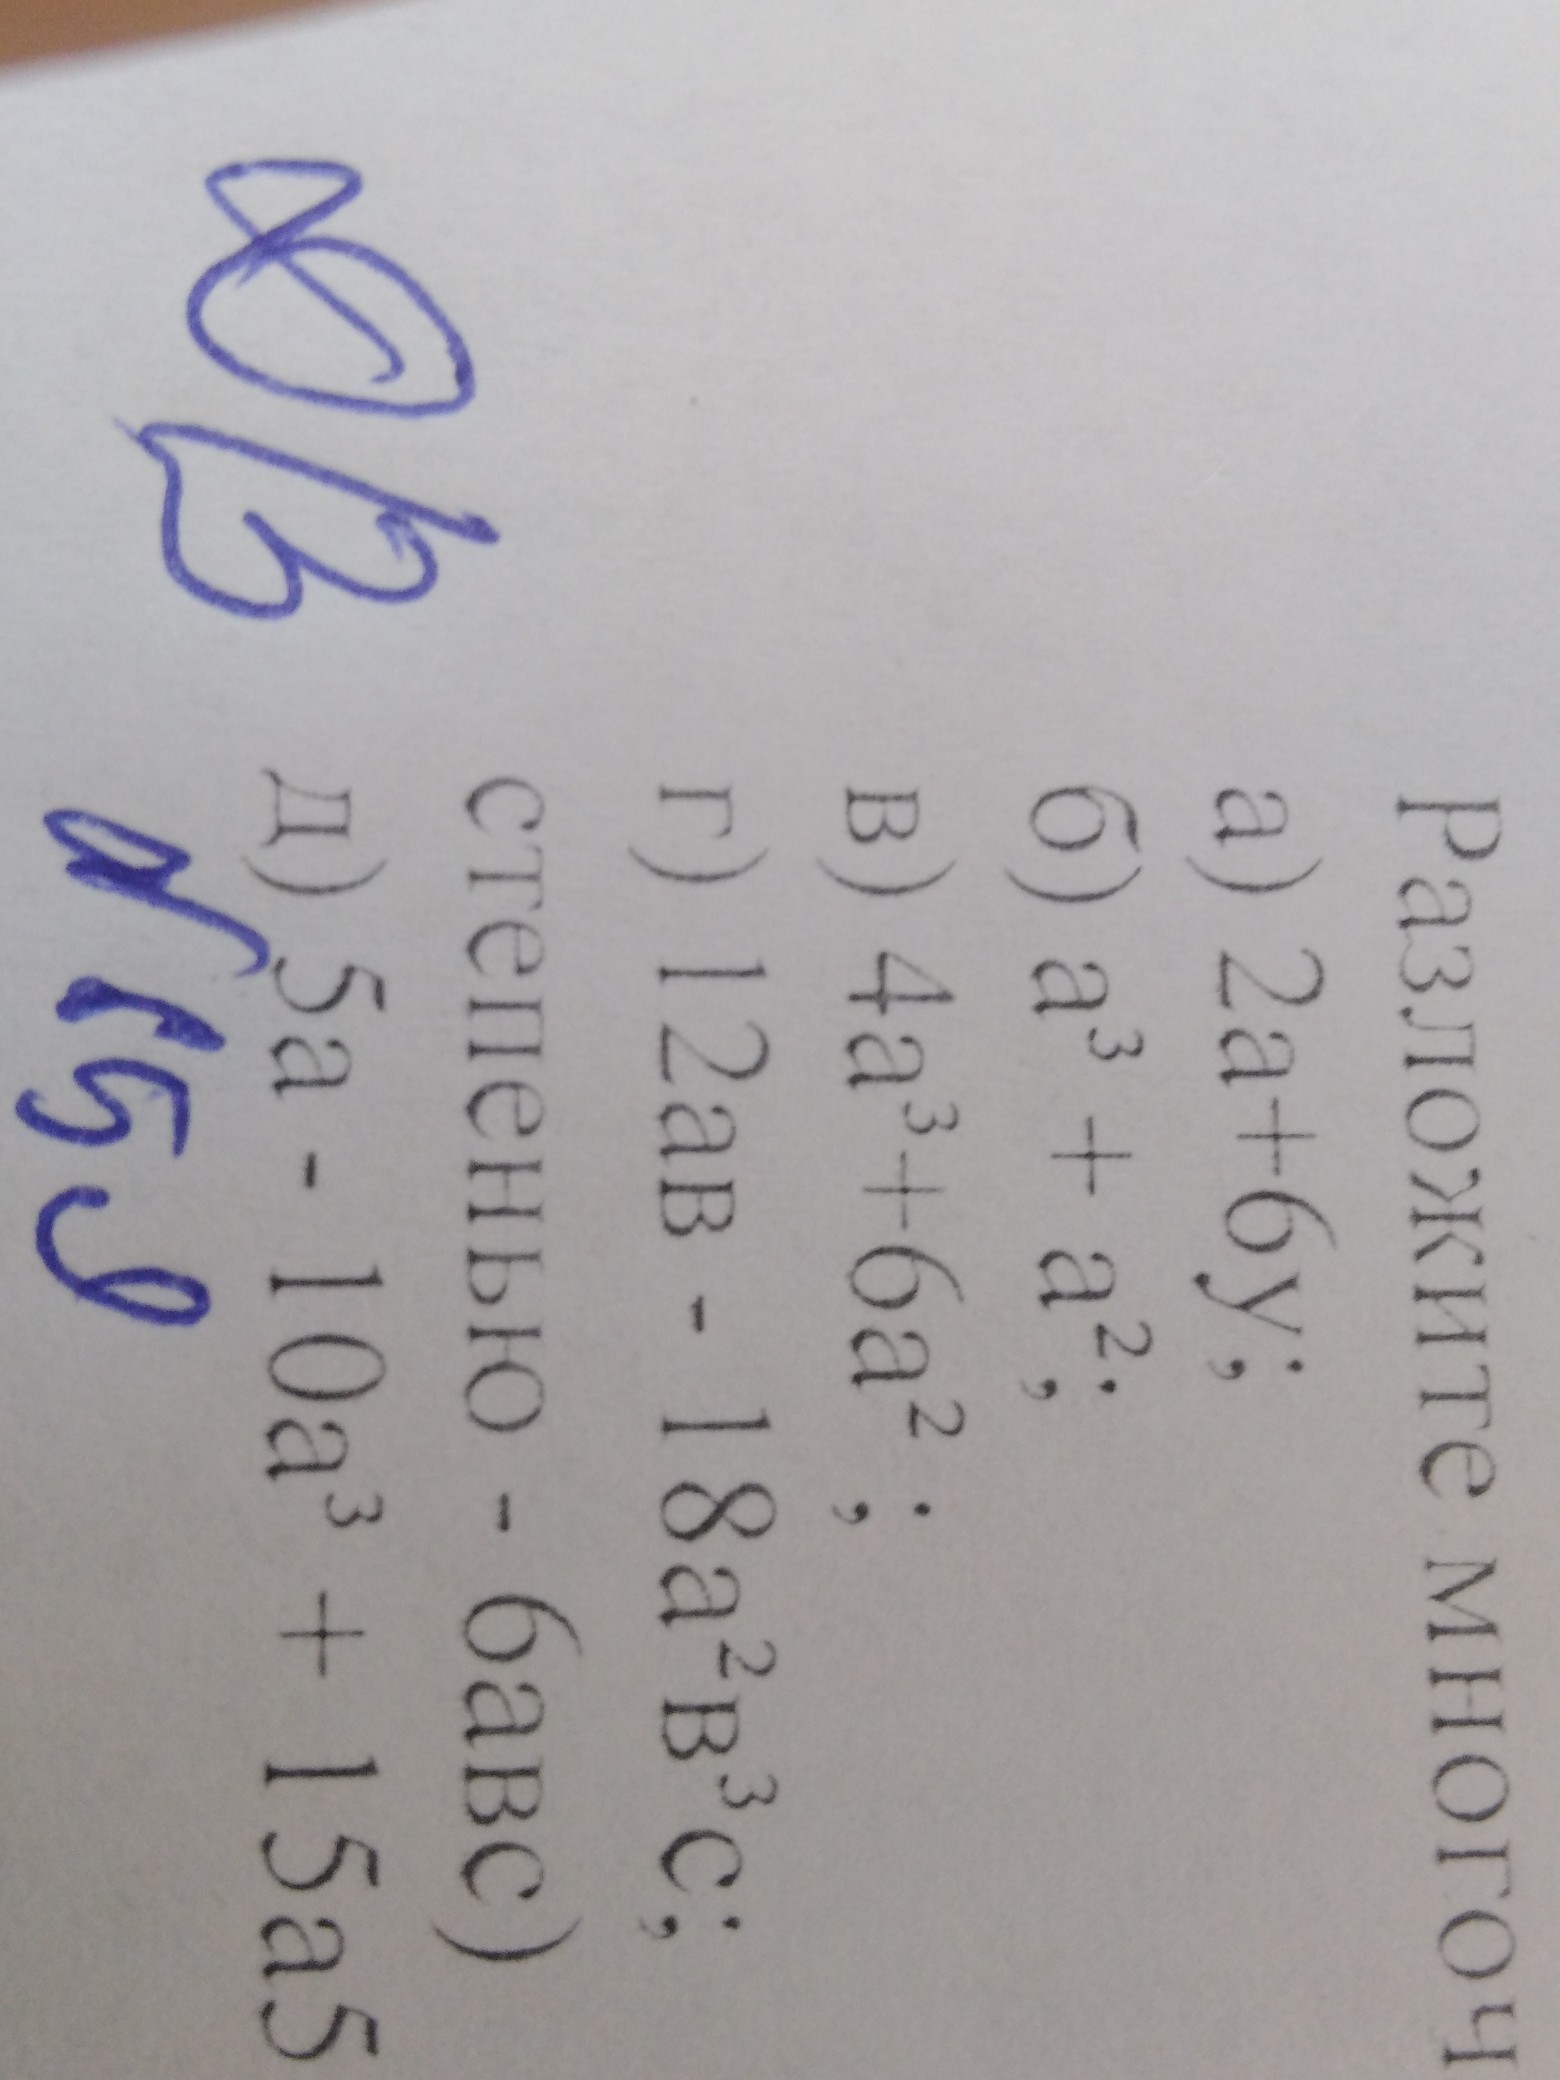 Разложите многоч
а) 2а+6у;
б) а³ + а²;
в) 4а³+6а² ;
г) 12ав - 18а²в³с;
степенью - 6авс)
д) 5а - 10а³ + 15а5